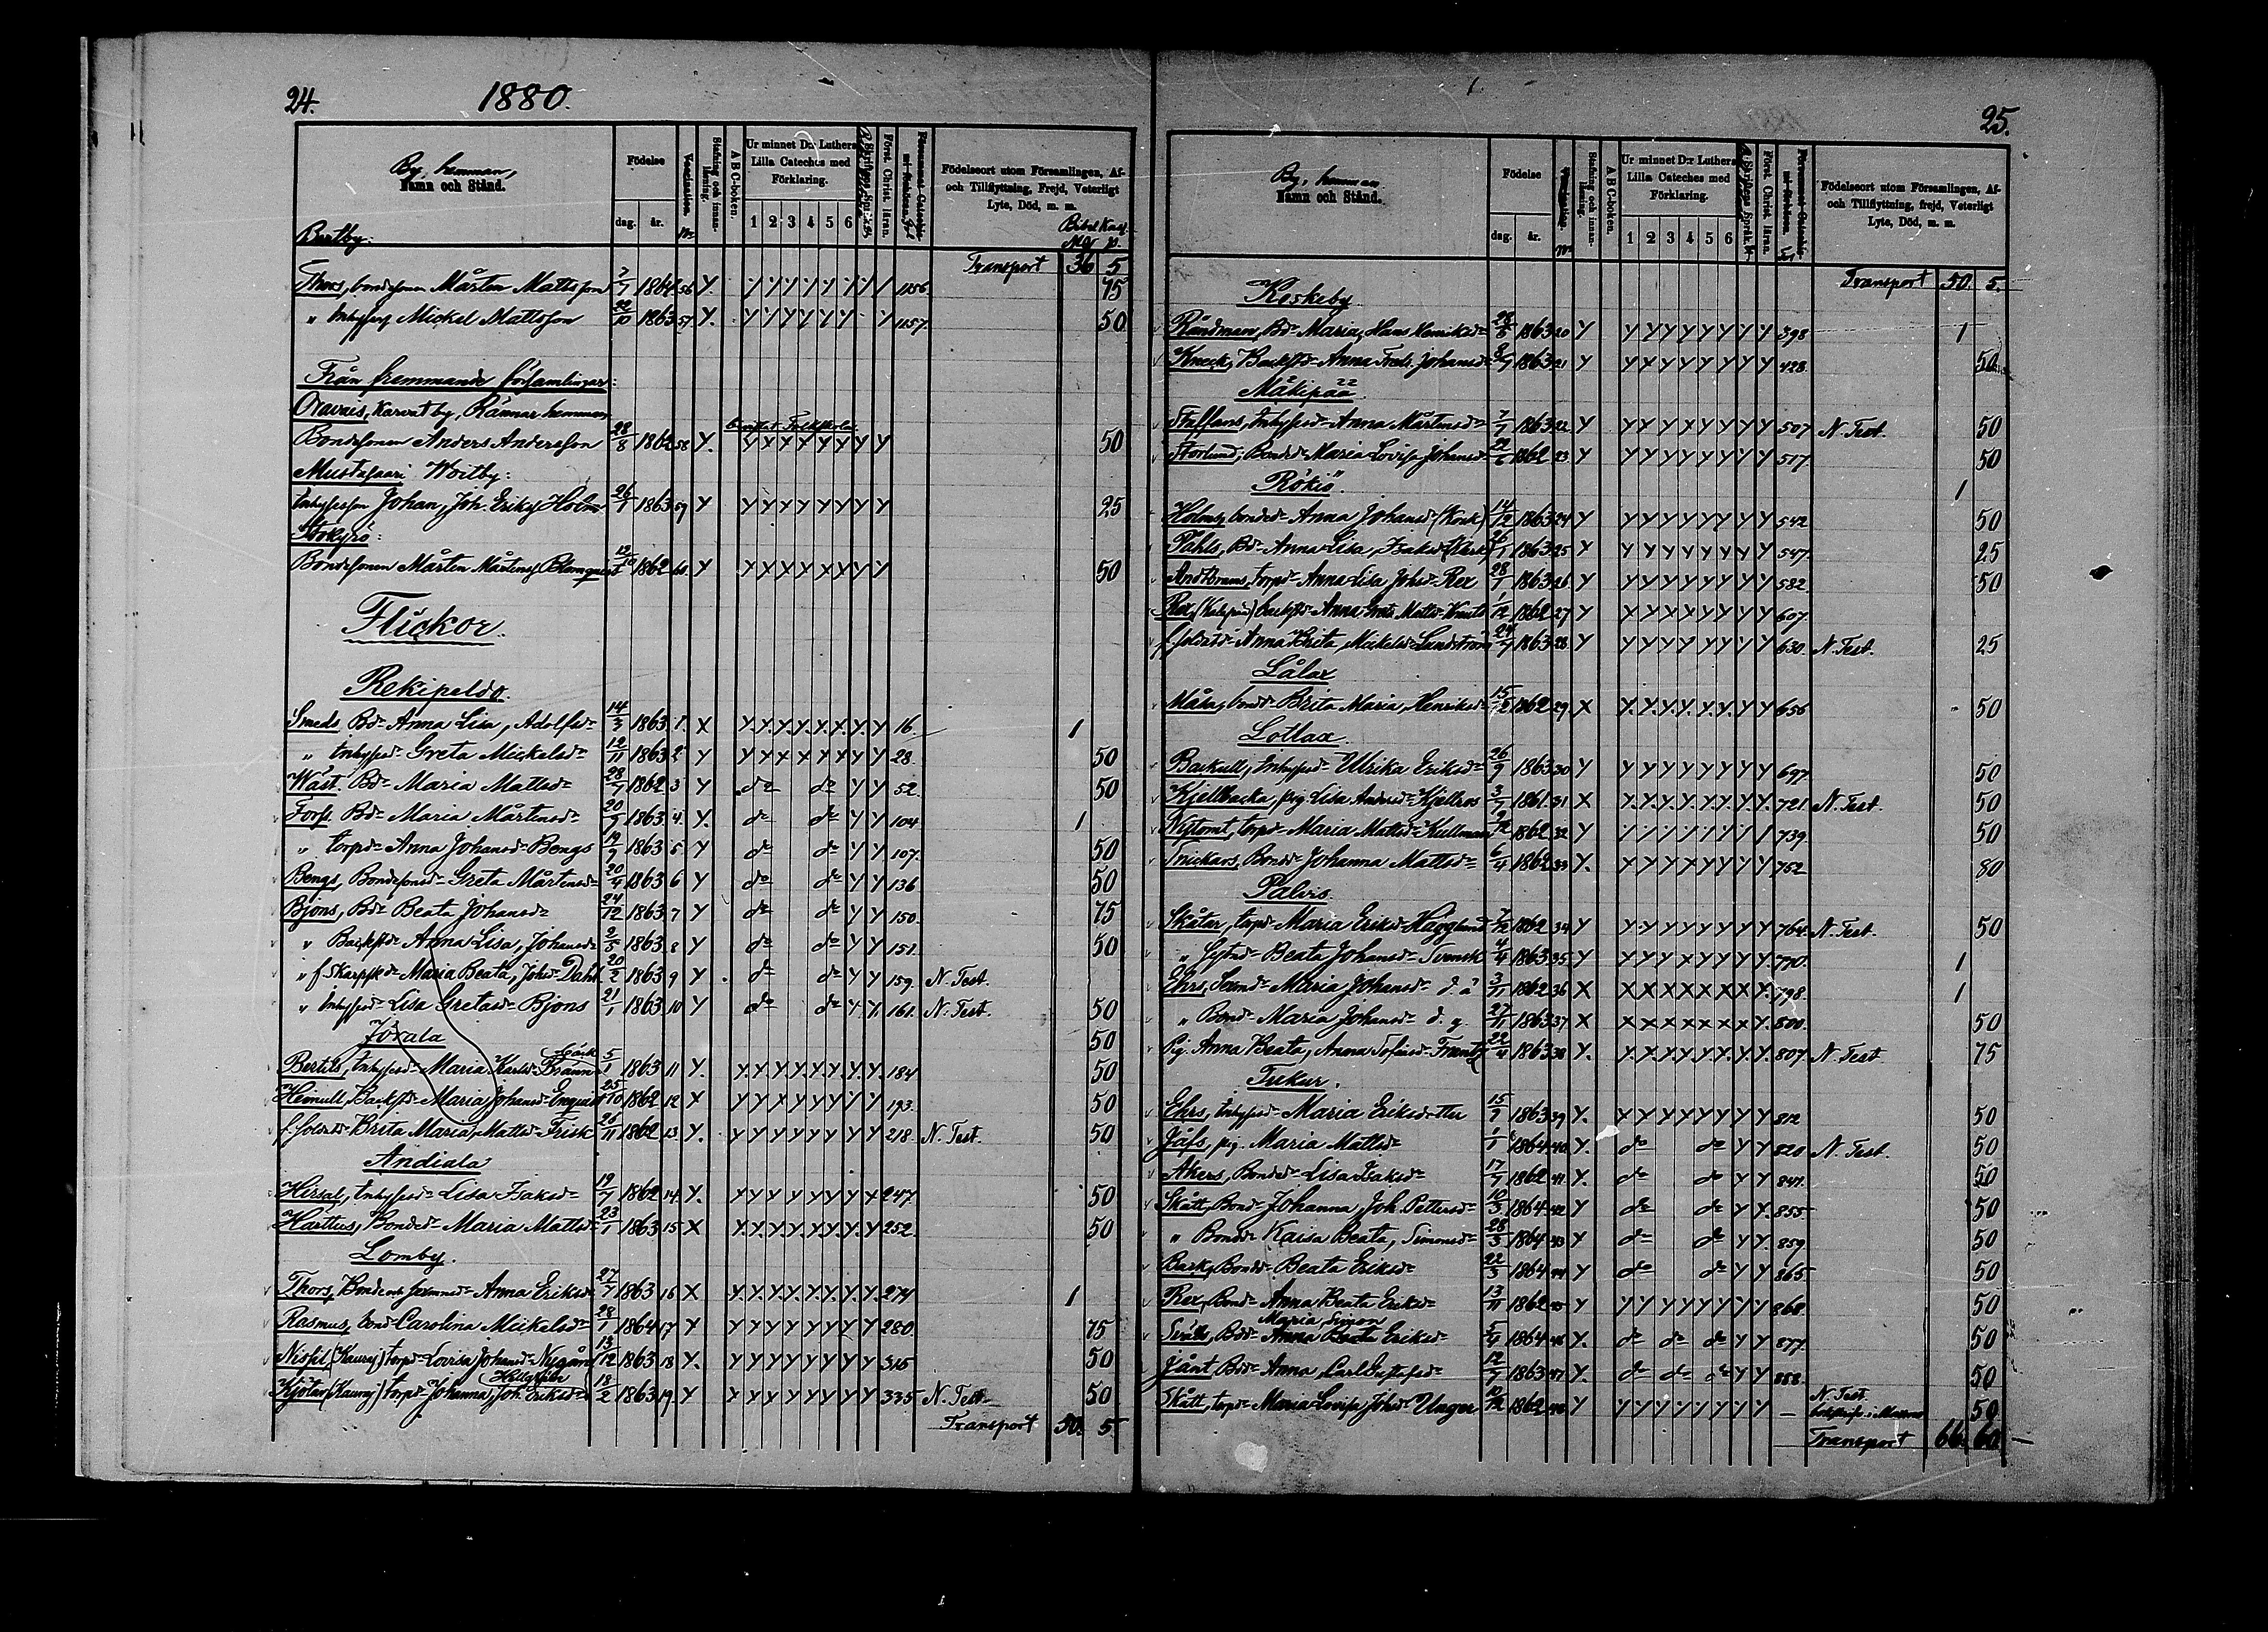 24.
1880.
By, hemman,
Namn och Stånd.
Födelse
dag.
år.
Vaccination.
Stafning och innan-
läsning.
A B C-boken.
Ur minnet D:r Luthers
Lilla Cateches med
Förklaring.
1 2 3 4 5 6
Först. Christ. läran.
Födelseort utom Församlingen, Af-
och Tillflyttning, Frejd, Veterligt
Lyte, Död, m. m.
Bertby.
Transport 36 5
Thors, bondesonen Mårten Mattsson 7/7 1864 56 Y. Y Y Y Y Y Y Y / 1156 75
" Inhysess Mickel Mattsson 22/10 1863 57 Y. Y Y Y Y Y Y Y 1157 50
Från fremmande församlingar:
Oravais, Karvat by, Rännar hemman
Bondesonen Anders Andersson 28/8 1862 58 Y. Y Y Y Y Y Y Y Y 50
Mustasaari Woitby:
Inhysesson Johan, Joh. Eriks Holm 26/1 1863 59 Y Y Y Y Y Y Y Y Y 25
Storkyrö:
Bondesonen Mårten Mårtens Blomquist 19/10 1862 60. Y Y Y Y Y Y Y Y Y 50
Flickor.
Rekipeldo.
Smeds Bd. Anna Lisa, Adolfsd. 14/3 1863 1. X Y. Y. Y. Y. Y. Y. Y. Y 16. 1
" Inhysesd. Greta Mickelsd. 12/11 1863 2 Y Y Y Y Y Y Y Y Y 28. 50
Wäst. Bd. Maria Mattsd. 28/7 1862 3 Y do do Y Y 52. 50
Forss. Bd. Maria Mårtensd. 20/9 1863 4. Y. do do Y Y 104 1
" torpd. Anna Johansd. Bengs 19/9 1863 5 Y do do Y Y 107. 50
Bengs, Bondesonsd. Greta Mårtensd. 20/4 1863 6 Y do do Y Y 136 50
Bjöns, Bd. Beata Johansd. 24/12 1863 7 Y do do Y Y 150. 75
" Backstd. Anna Lisa, Johansd. 2/5 1863 8 Y do do Y Y 151. 50
" f Skarpskd. Maria Beata, Johsd. Dahl 20/2 1863 9 Y do do Y Y 159. N. Test.
" Inhysesd. Lisa Gretasd. Bjöns 21/1 1863 10 Y do do Y Y. 161. N. Test. 50
Jörala 50
Bertils, Inhysesd. Maria Karlsd. Bränn 5/1 1863 11 Y. Y. Y. Y. Y. Y. Y. Y. Y. 184 50
Heimull, Backstd. Maria Johansd. Enquist 25/10 1862 12 X Y Y Y Y Y Y Y Y 193. 50
f. Soldatd. Brita Maria, Mattsd. Frisk 26/11 1862 13 Y. Y Y Y Y Y Y Y Y 218. N. Test. 50
Andiala
Hirsal, Inhysesd. Lisa Isaksd. 19/7 1862 14. Y. Y Y Y Y Y Y Y X 247. 50
Harttus, Bonded. Maria Mattsd. 23/1 1863 15 X Y. Y. Y. Y. Y. Y. Y. Y 252. 50
Lomby.
Thors, Bonde Anna Eriksd. 27/7 1863 16 X Y. Y. Y. Y. Y. Y. Y. Y. 274 1
Rasmus, bond. Carolina Mickelsd. 28/1 1864 17 Y Y Y Y Y Y Y Y Y 280. 75
Nissil (Kauraj) torpd. Lovisa Johansd. Nygård 13/12 1863 18 Y. Y Y Y Y Y Y Y Y 315 50
Kjötar (Kauraj) torpd. Johanna, Joh. Eriksd. 18/2 1863 19. Y Y Y Y Y Y Y Y Y 335 N. Test. 50
Transport 50. 5
25.
By, hemman
Namn och Stånd.
Födelse
dag.
år.
Stafning och innan-
läsning.
A B C-boken.
Ur minnet D:r Luthers
Lilla Cateches med
Förklaring.
1 2 3 4 5 6
Först. Christ. läran.
Födelseort utom Församlingen, Af-
och Tillflyttning, frejd, Veterligt
Lyte, Död, m. m.
Transport 50. 5.
Koskeby
Rändman, Bd. Maria, Hans Henriksd. 28/5 1863 20 Y Y Y Y Y Y Y Y Y 398 1
Kneck, Backstd. Anna Fredr. Johansd. 8/7 1863 21 Y Y X Y Y Y Y Y Y 428. 50
Mäkipää 22
Steffans, Inhysesd. Anna Mårtensd. 7/7 1863 22. Y Y Y Y Y Y Y Y Y 507 N. Test. 50
Storlund, Bonded. Maria Lovisa Johansd. 22/6 1862 23 Y Y Y Y Y Y Y Y Y 517. 50
Rökiö. 1
Holms, bonded. Anna Johansd. (Konk) 14/12 1863 24 Y Y Y Y Y Y Y Y Y 542 50
Påhls, Bd. Anna Lisa, Isaksd. 26/1 1863 25 Y Y Y Y Y Y Y Y Y 547. 25
torpd. Anna Lisa Johsd. Rex 28/1 1863 26 Y Y Y Y Y Y Y Y Y 582. 50
Rex, backstd. Anna Greta Mattsd. 1/12 1862 27 Y X Y Y Y Y Y Y Y 607.
f Soldatd. Anna Brita, Mickelsd. Lundström 24/7 1863 28 Y Y Y Y Y Y Y Y Y 630. N. Test. 25
Lålax
Måka, bondd. Brita Maria, Henriksd. 15/2 1862 29 X Y. Y. Y. Y. Y. Y. Y Y 656 50
Lotlax.
Backull, Inhysesd. Ulrika Eriksd. 26/9 1863 30 Y Y Y Y Y Y Y Y Y 697 50
Kjellbacka, pig Lisa Andersd. Kjellros 3/7 1861. 31 X Y. Y. Y. Y. Y. Y. Y. Y. 721. N. Test. 50
Nytomt, torpd. Maria Mattsd. Kullman 9/12 1862 32 Y 739. 50
Snickars, Bondd. Johanna Mattsd. 6/4 1862 33 Y. X Y Y X Y Y Y Y 752 80
Palvis.
Skåtar, torpd. Maria Eriksd. Hägglund 7/12 1862 34 Y Y Y Y Y Y Y Y Y 764. N. Test. 50
" Gästgd. Beata Johansd. Svensk 4/4 1863 35 Y Y Y Y X Y Y Y Y 770. 1
Ehrs, Sexmd. Maria Johansd. d. ä 3/11 1862 36 X X X X X X X X Y. 798. 1
" Bond. Maria Johansd. d. y. 27/11 1863 37 X X X X X X X X Y. 800. 50
Pig. Anna Beata, Anna Sofiasd. Frantz 22/4 1863 38 Y. Y. X. Y. Y. Y. Y. Y. Y. 807 N. Test 75
Tukur.
Ehrs, Inhysesd. Maria Eriksdotter 15/9 1863 39 Y. X Y Y Y Y Y Y Y 812 50
Jåfs, pig. Maria Mattsd. 1/1 1864 40. Y. do do Y Y 820 N. Test. 50
Akers, Bonded. Lisa Isaksd. 17/7 1862 41 Y. do do Y Y 841. 50
Skått, Bond. Johanna Joh. Pettersd. 10/3 1864 42 Y do do Y Y. 855 50
" Bondd. Kaisa Beata, Simonsd. 28/3 1864 43 Y do do Y Y. 859 50
Back, Bondd. Beata Eriksd. 22/3 1864 44 Y do do Y Y 865 50
Rex, Bond. Anna Beata Eriksd. 13/11 1862 45 Y Y Y Y Y Y Y Y Y 868. 50
Maria Simon
Svälts, Bdd. Anna Beata Eriksd. 5/4 1864 46 Y. do do do Y Y 877. 50
Jånt Bdd. Anna, Carl Gustafsd. 12/7 1863 47 Y. do do do Y Y 888. 50
Skått, torpd. Maria Lovisa Johsd. Unger 10/12 1862 48 Y Y Y Y Y Y Y Y Y — N. Test. 50
Transport 66. 60.